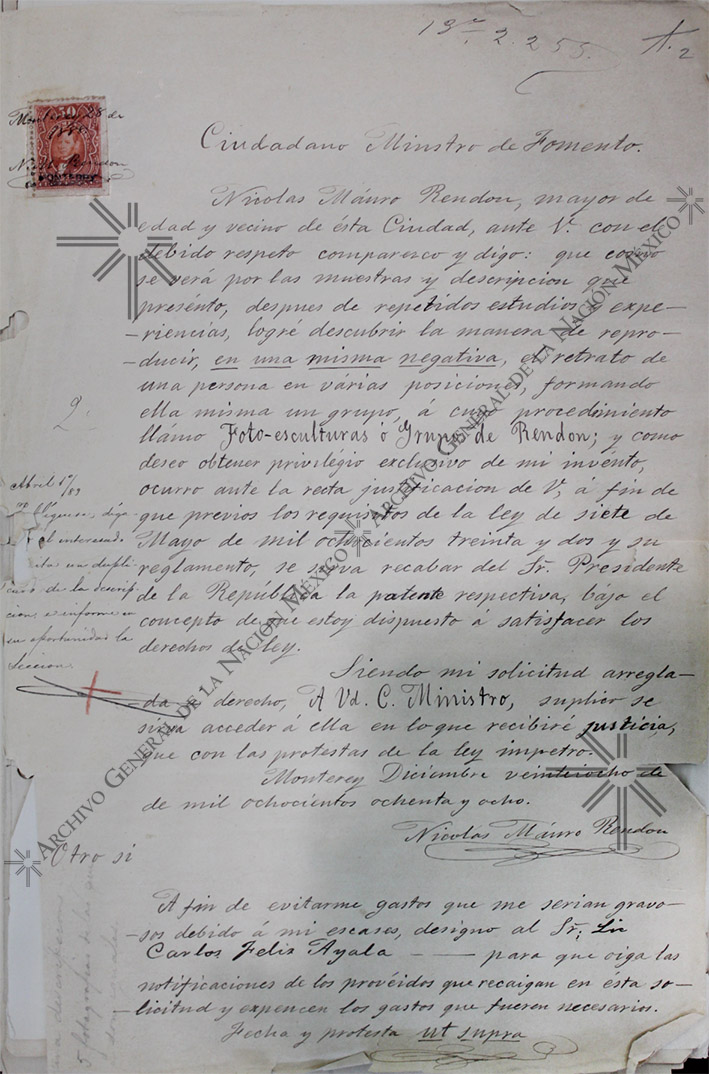 13ª 2.255. A. 2
50
Monterey, 28 de
Nicolás Rendon
MONTEREY
Ciudadano Minstro de Fomento.
Nicolas Máuro Rendon, mayor de
edad y vecino de ésta Ciudad, ante V. con el
debido respeto comparesco y digo: que como
se verá por las muestras y descripcion que
presénto, despues de repetidos estudios y expe-
-riencias, logré descubrir la manera de repro-
-ducir, en una misma negativa, el retrato de
una persona en várias posiciones, formando
ella misma un grupo, á cuyo procedimiento
llámo Foto-esculturas ó Grupos de Rendon; y como
deseo obtener privilégio exclusivo de mi invénto,
ocurro ante la recta justificacion de V, á fin de
que previos los requisitos de la ley de siete de
Mayo de mil ochocientos treinta y dos y su
reglamento, se sirva recabar del Sr. Presidente
de la República la patente respectiva, bájo el
concepto de que estoy dispuesto á satisfacer los
derechos de ley.
Siendo mi solicitud arregla-
-da á derecho, A Vd. C. Ministro, suplico se
sirva acceder á ella en lo que recibiré justicia,
que con las protestas de la ley impetro.
Monterey Diciembre veintiocho de
de mil ochocientos ochenta y ocho.
Nicolás Máuro Rendon
2.
Abril 1º/89
dupli-
cado de la descrip-
cion e informe en
su oportunidad la
Seccion.
Otro si
A fin de evitarme gastos que me serian gravo-
-sos debido á mi escases, designo al Sr. Lic
Carlos Feliz Ayala — para que oiga las
notificaciones de los provéidos que recaigan en ésta so-
-licitud y expencen los gastos que fueren necesarios.
Fecha y protesta ut supra
5 fotografías
ARCHIVO GENERAL DE LA NACIÓN MÉXICO
ARCHIVO GENERAL DE LA NACIÓN MÉXICO